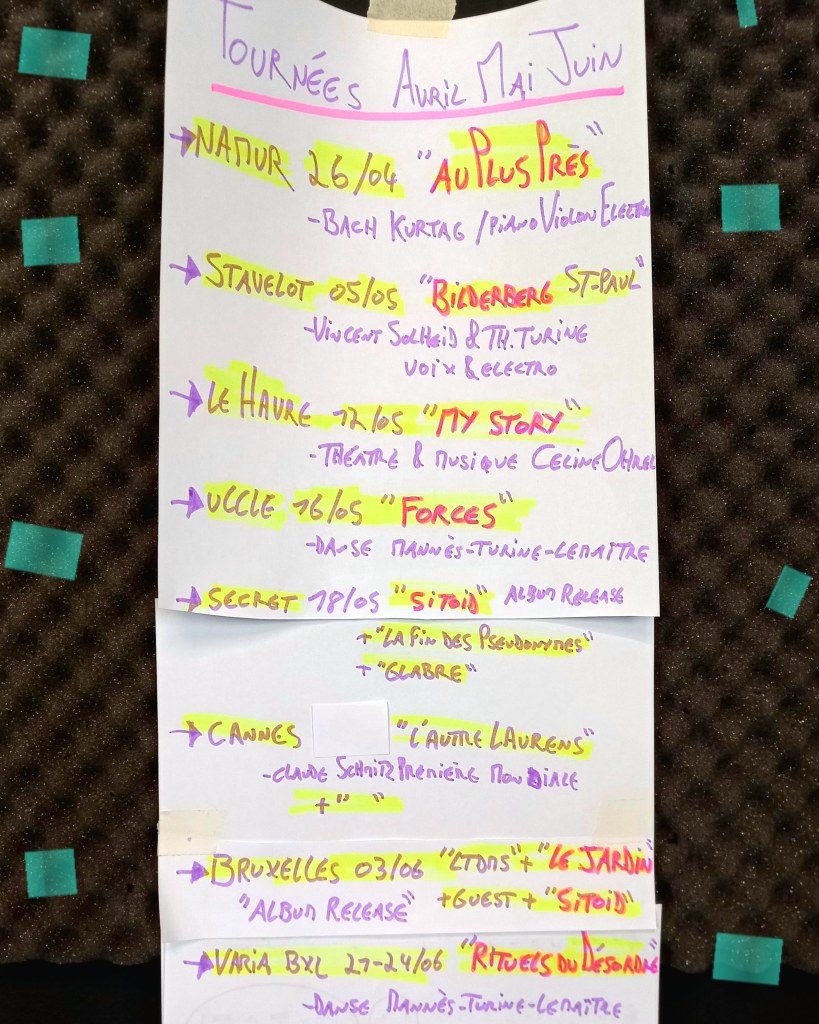 TOURNÉES AVRIL MAI JUIN
→ NAMUR 26/04 "AU PLUS PRÈS"
-BACH KURTAG / PIANO VIOLON ELECTRO
→ STAVELOT 05/05 "BILDERBERG ST-PAUL"
-VINCENT SOLHEID & TH. TURINE
VOIX & ELECTRO
→ LE HAVRE 12/05 "MY STORY"
-THÉATRE & MUSIQUE CELINE OHREL
→ UCCLE 16/05 "FORCES"
-DANSE MANNÈS-TURINE-LEMAÎTRE
→ SECRET 18/05 "SITOID" ALBUM RELEASE
+ "LA FIN DES PSEUDONYMES"
+ "GLABRE"
→ CANNES "L'AUTRE LAURENS"
-CLAUDE SCHMITZ PREMIÈRE MONDIALE
+ " "
→ BRUXELLES 03/06 "LTDMS" + "LE JARDIN"
"ALBUM RELEASE" +GUEST + "SITOID"
→ VARIA BXL 21-24/06 "RITUELS DU DÉSORDRE"
-DANSE MANNÈS-TURINE-LEMAÎTRE